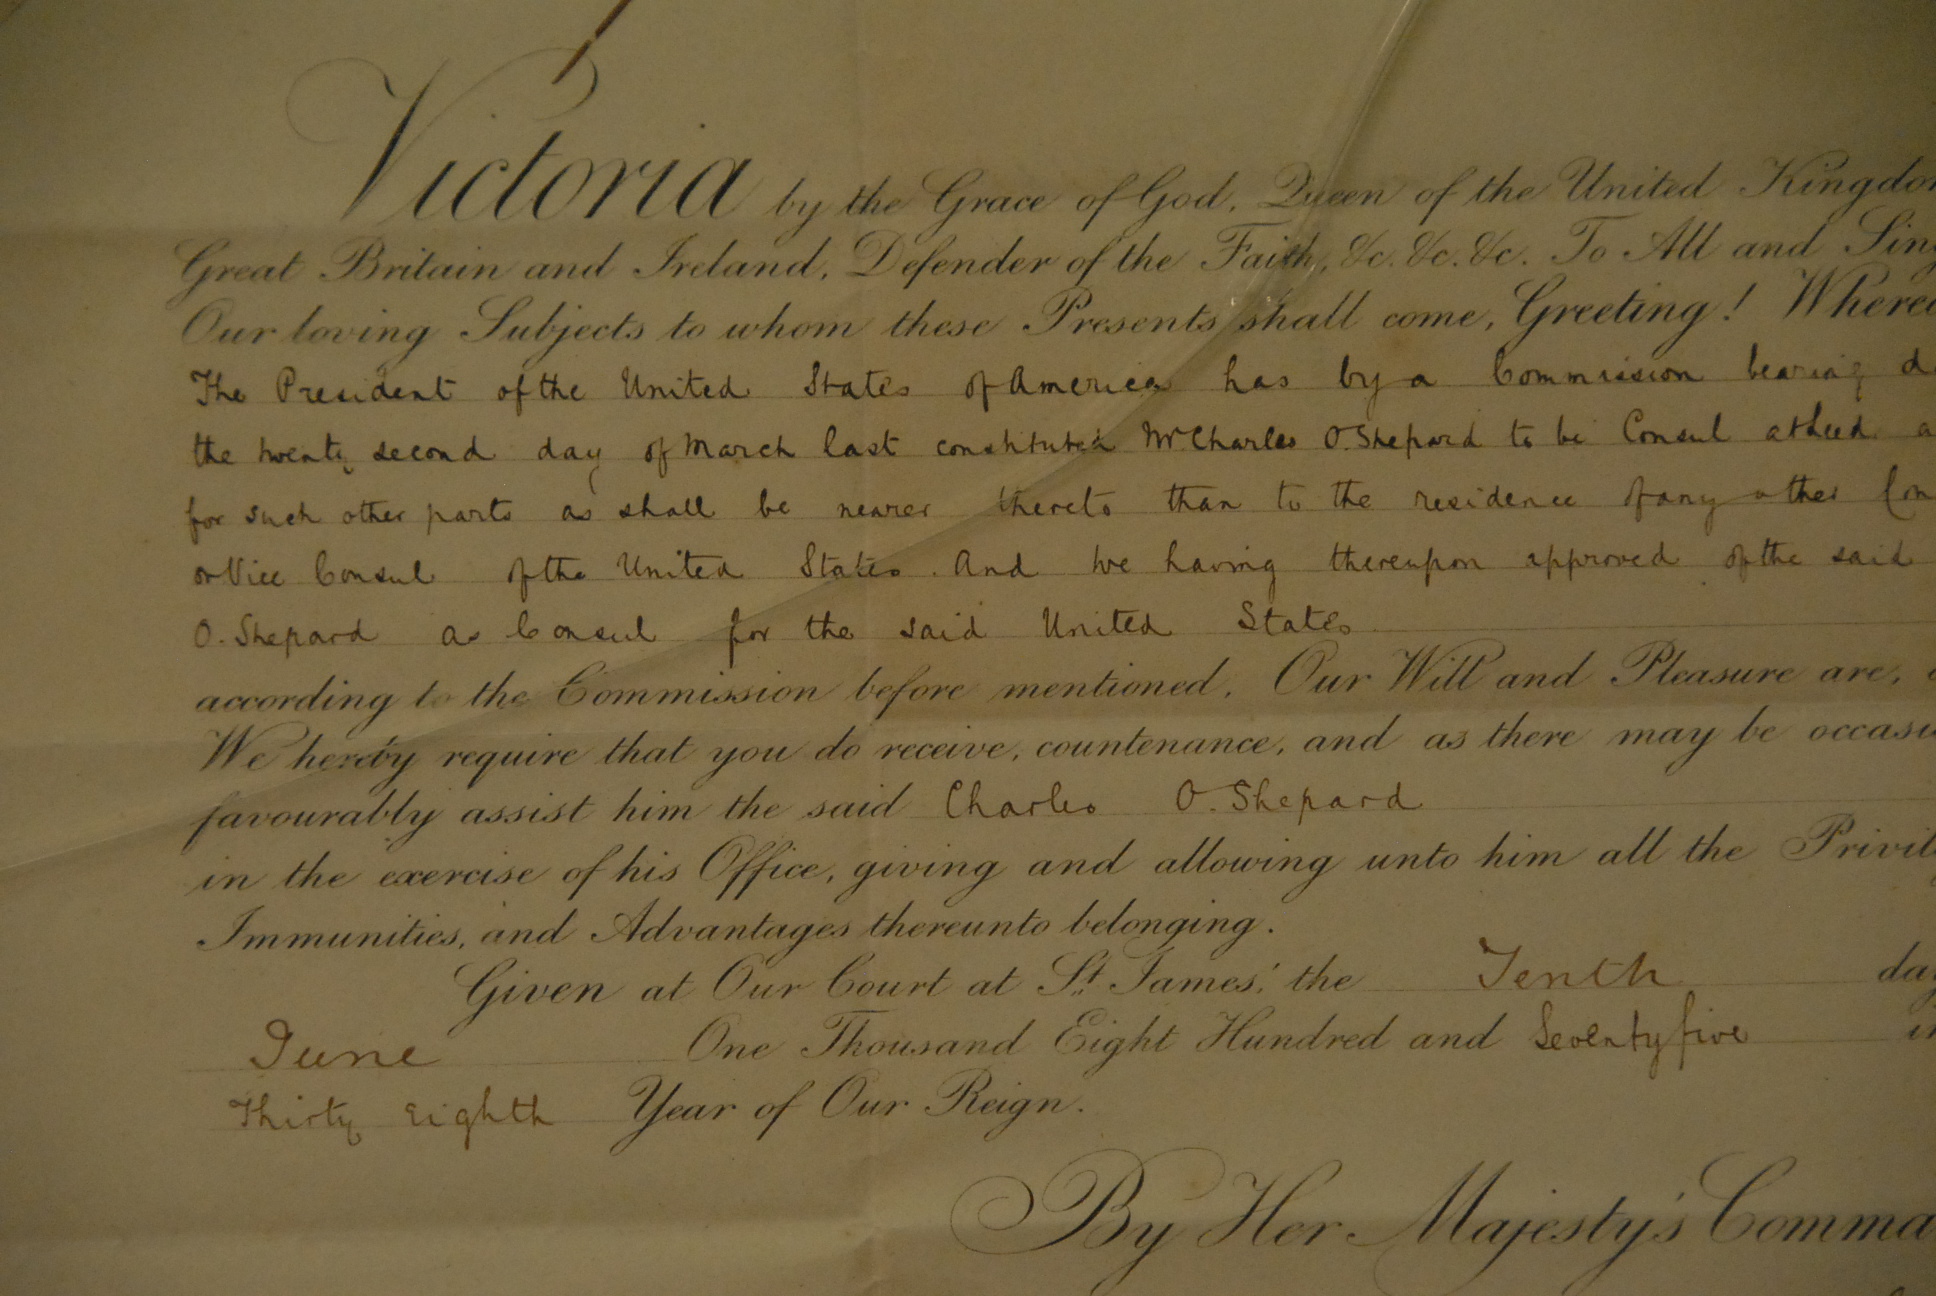 Victoria by the Grace of God, Queen of the United Kingdom
Great Britain and Ireland, Defender of the Faith, &c. &c. &c. To All and Sing
Our loving Subjects to whom these Presents shall come, Greeting! Wherea
The President of the United States of America has by a Commission bearing d
the twenty second day of March last constituted Mr. Charles O. Shepard to be Consul at Leeds a
for such other parts as shall be nearer thereto than to the residence of any other Con
or Vice Consul of the United States. And We having thereupon approved of the said
O. Shepard as Consul for the said United States
according to the Commission before mentioned, Our Will and Pleasure are,
We hereby require that you do receive, countenance, and as there may be occasi
favourably assist him the said Charles O. Shepard
in the exercise of his Office, giving and allowing unto him all the Privile
Immunities, and Advantages thereunto belonging.
Given at Our Court at St. James', the Tenth day
June One Thousand Eight Hundred and Seventy five in
Thirty Eighth Year of Our Reign.
By Her Majesty's Comma